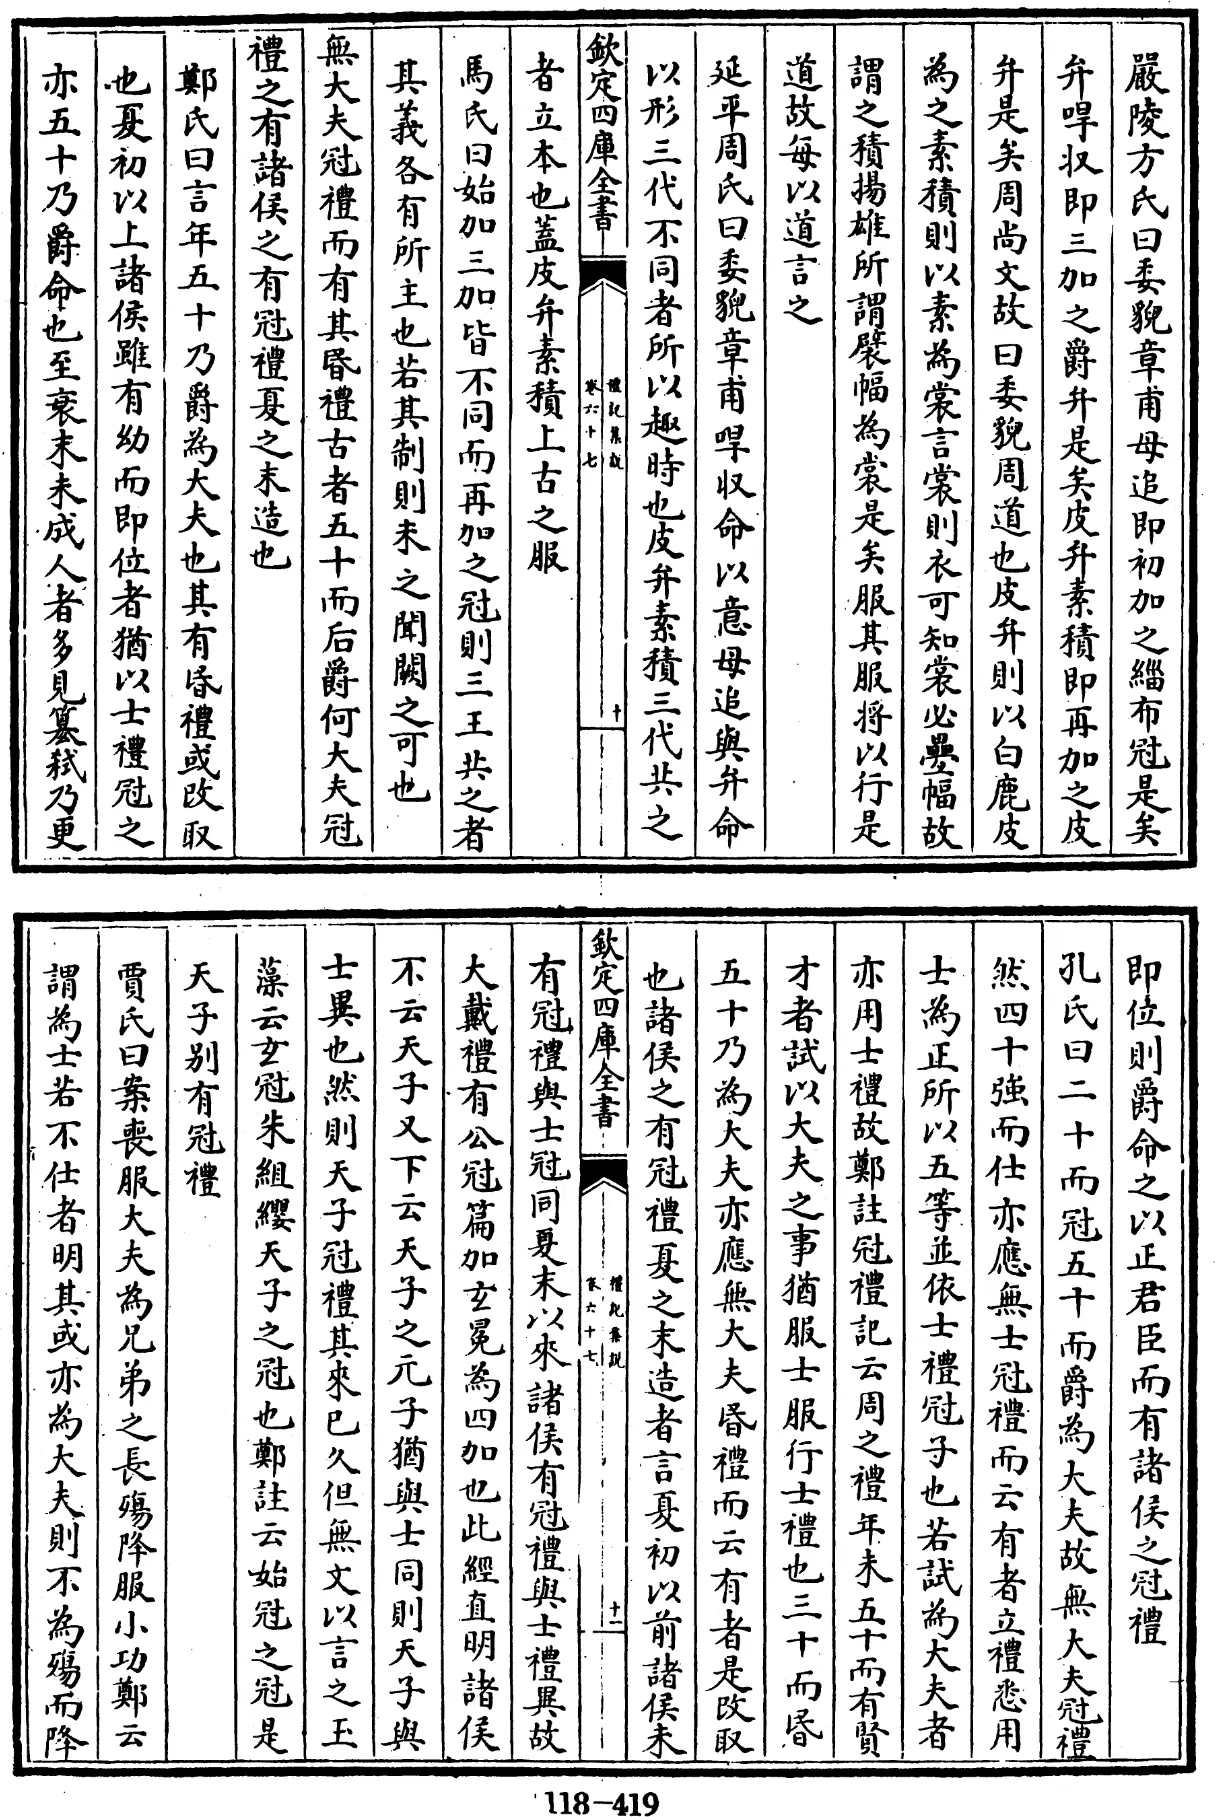 嚴陵方氏曰委貌章甫毋追即初加之緇布冠是矣
弁哻収即三加之爵弁是矣皮弁素積即再加之皮
弁是矣周尚文故曰委貌周道也皮弁則以白鹿皮
為之素積則以素為裳言裳則衣可知裳必疊幅故
謂之積揚雄所謂襞幅為裳是矣服其服將以行是
道故每以道言之
延平周氏曰委貌章甫哻収命以意毋追與弁命
以形三代不同者所以趣時也皮弁素積三代共之
欽定四庫全書
禮記集說
卷六十七
十
者立本也蓋皮弁素積上古之服
馬氏曰始加三加皆不同而再加之冠則三王共之者
其義各有所主也若其制則未之聞闕之可也
無大夫冠禮而有其昏禮古者五十而后爵何大夫冠
禮之有諸侯之有冠禮夏之末造也
鄭氏曰言年五十乃爵為大夫也其有昏禮或改取
也夏初以上諸侯雖有幼而即位者猶以士禮冠之
亦五十乃爵命也至衰末未成人者多見簒弑乃更
即位則爵命之以正君臣而有諸侯之冠禮
孔氏曰二十而冠五十而爵為大夫故無大夫冠禮
然四十強而仕亦應無士冠禮而云有者立禮悉用
士為正所以五等並依士禮冠子也若試為大夫者
亦用士禮故鄭註冠禮記云周之禮年未五十而有賢
才者試以大夫之事猶服士服行士禮也三十而昏
五十乃為大夫亦應無大夫昏禮而云有者是改取
也諸侯之有冠禮夏之末造者言夏初以前諸侯未
欽定四庫全書
禮記集說
卷六十七
十一
有冠禮與士冠同夏末以來諸侯有冠禮與士禮異故
大戴禮有公冠篇加玄冕為四加也此經直明諸侯
不云天子又下云天子之元子猶與士同則天子與
士異也然則天子冠禮其來已久但無文以言之玉
藻云玄冠朱組纓天子之冠也鄭註云始冠之冠是
天子別有冠禮
賈氏曰案喪服大夫為兄弟之長殤降服小功鄭云
謂為士若不仕者明其或亦為大夫則不為殤而降
118-419